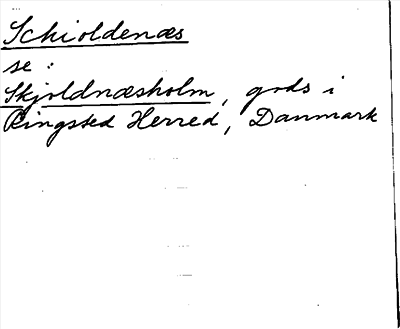 Schioldenæs
se :
Skjoldnæsholm, gods i
Ringsted Herred, Danmark